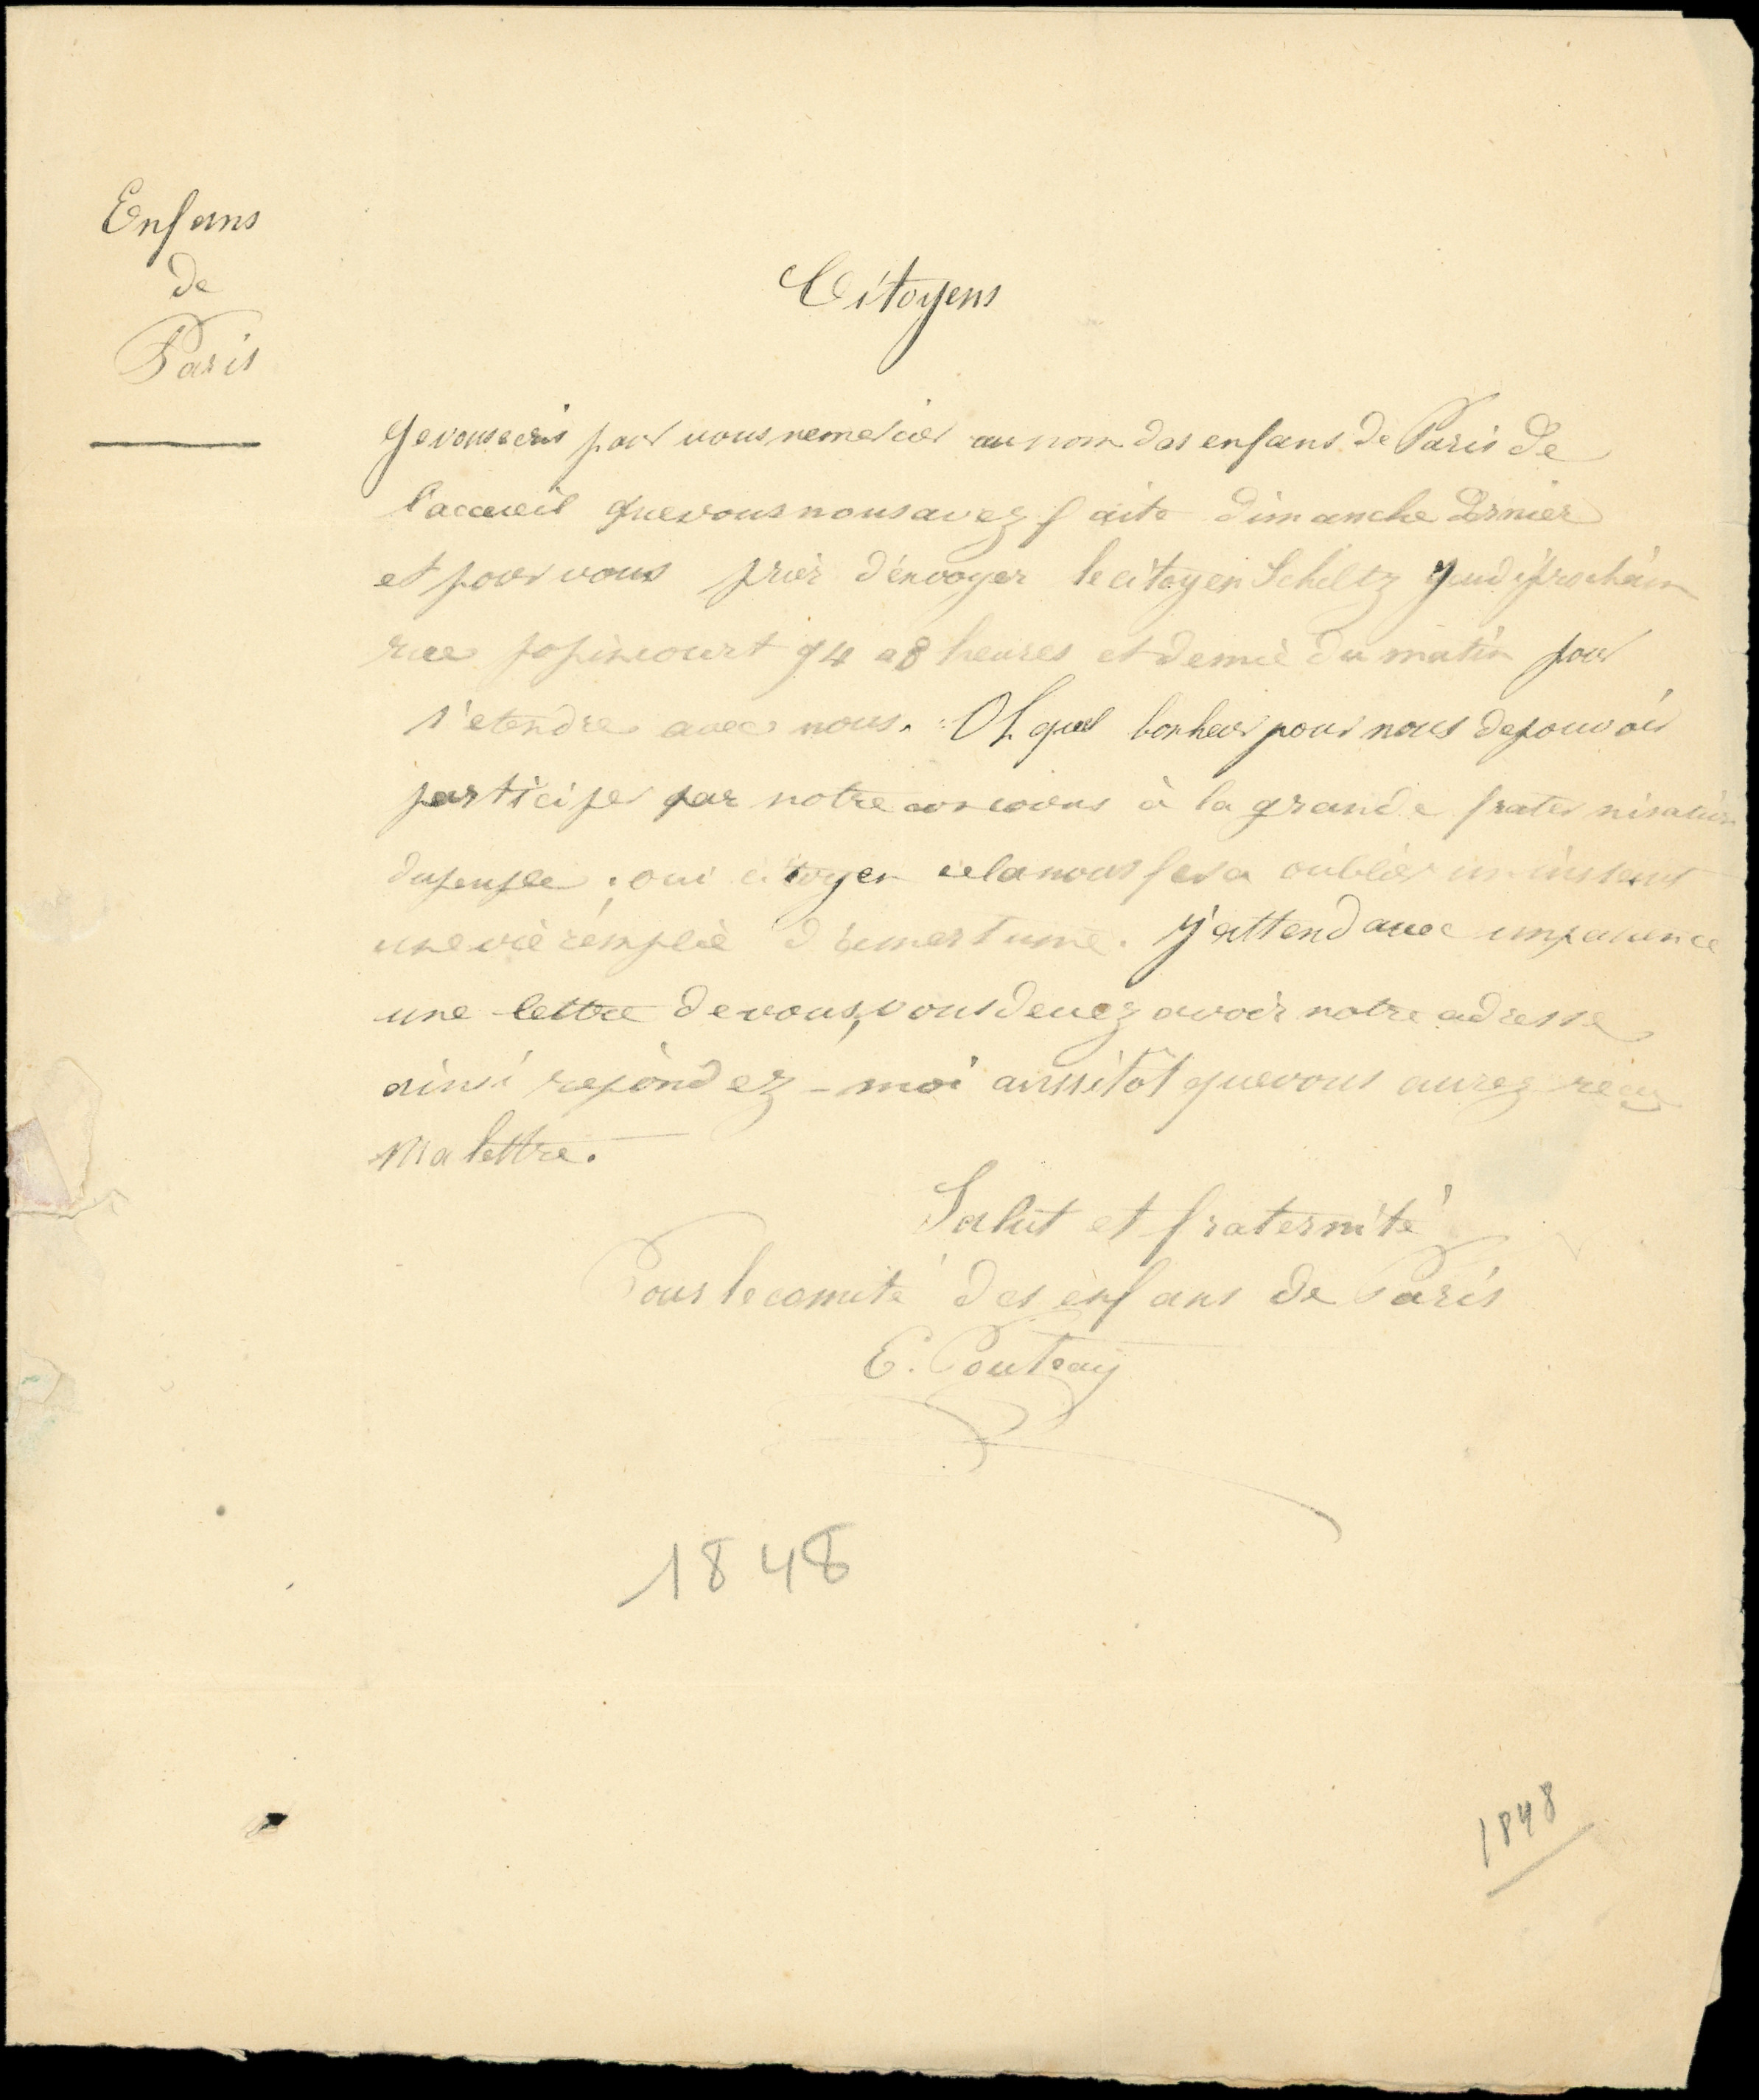 Enfans
de
Paris
Citoyens
Je vous ecris pour vous remercier au nom des enfans de Paris de
l'accueil que vous nous avez faite dimanche dernier
et pour vous prier d'envoyer le citoyen Schiltz Jeudi prochain
rue popincourt 94 a 8 heures et demie du matin pour
s'etendre avec nous. Oh quel bonheur pour nous de pouvoir
participer par notre concours à la grande fraternisation
du peuple ; oui citoyen cela nous fera oublier un instant
une vie remplie d'amertume. J'attend avec impatience
une lettre de vous, vous devez avoir notre adresse
ainsi repondez-moi aussitôt que vous aurez reçu
Ma lettre.
Salut et fraternité
Pour le comité des enfans de Paris
E.
1848
1848